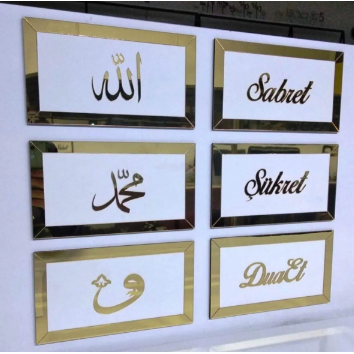 الله
Sabret
محمد
Şükret
و
DuaEt